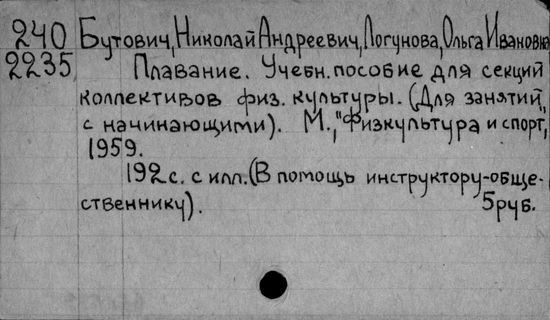 240 Бутович, Николай Андреевич, Логунова, Ольга Ивановна
2235 Плавание. Учебн. пособие для секций
коллективов физ. культуры. (Для занятий,
с начинающими). М., "Физкультура и спорт,
1959.
192 с. с илл. (В помощь инструктору-обще-
ственнику). 5 руб.